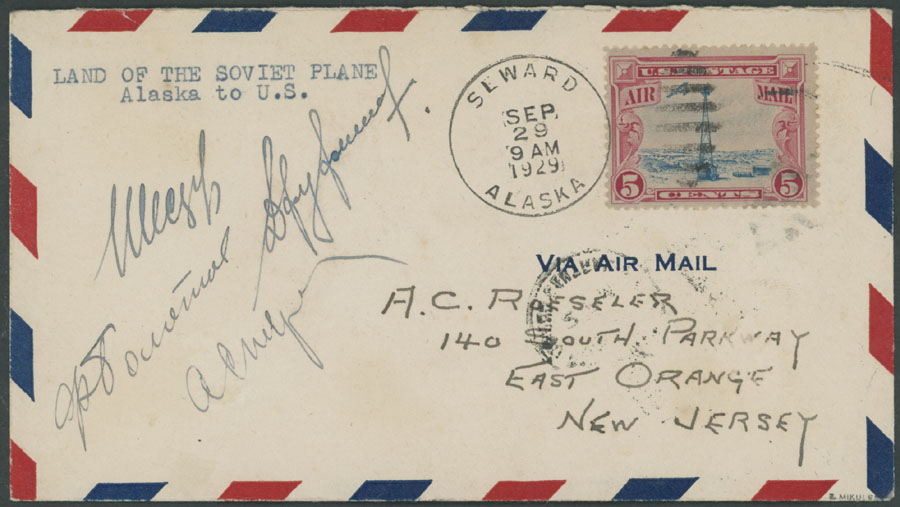 LAND OF THE SOVIET PLANE
Alaska to U.S.
SEWARD
SEP
29
9 AM
1929
ALASKA
U.S. POSTAGE
AIR MAIL
5 CENTS 5
Болотов
VIA AIR MAIL
A.C. ROESSLER
140 SOUTH PARKWAY
EAST ORANGE
NEW JERSEY